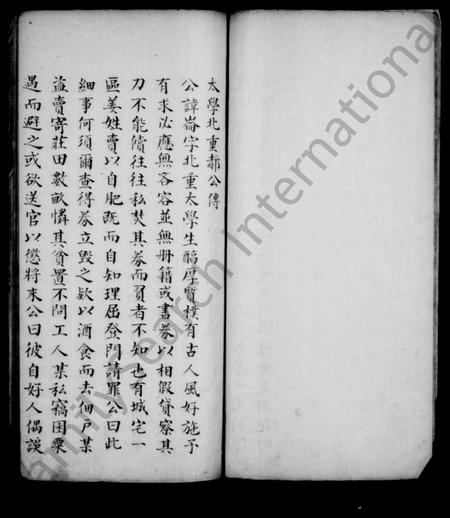 太學北重郝公傳
公諱崙字北重太學生醇厚質樸有古人風好施予
有求必應無吝容並無冊籍或書券以相假貸察其
力不能償往往私焚其券而負者不知也有城宅一
區姜姓賣以自肥既而自知理屈登門請罪公曰此
細事何須爾查得券立毀之欵以酒食而去佃戶某
盜賣寄莊田數畝憐其貧置不問工人某私竊囷粟
遇而避之或欲送官以懲將來公曰彼自好人偶誤
FamilySearch International